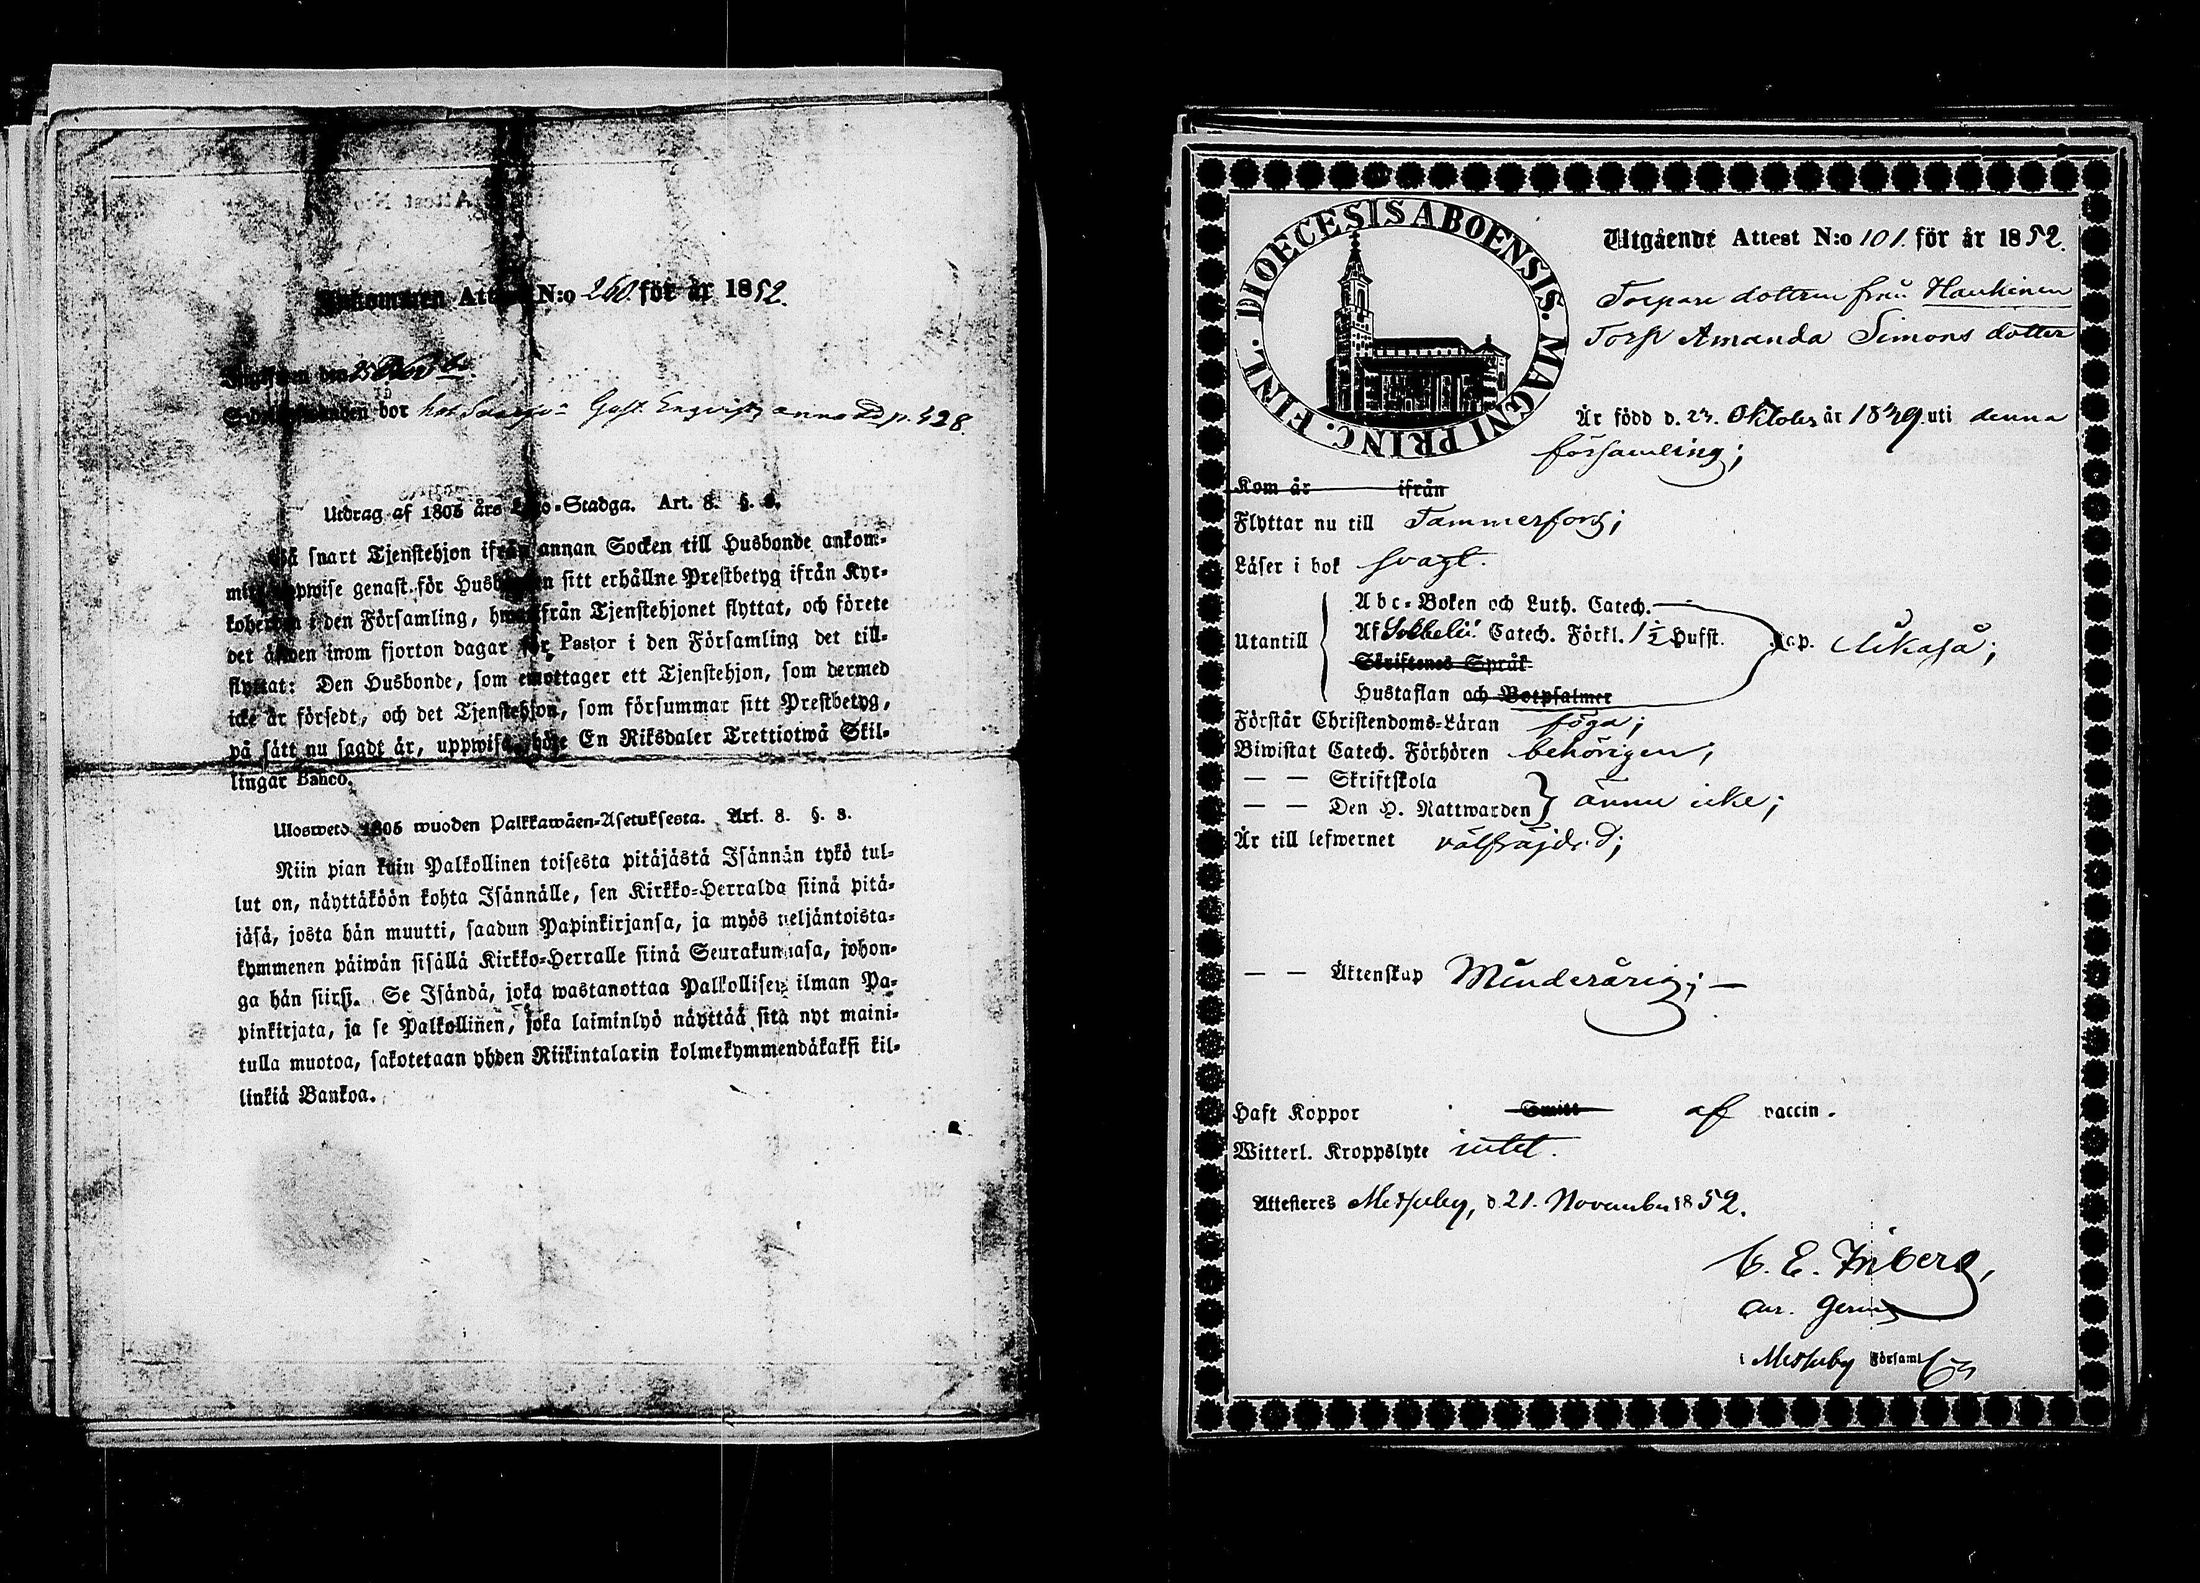 Inkommen Attest N:o 260. för år 1852.
den 25
bor hos Gust. Enqvist p. 428.
Utdrag af 1805 års Lego-Stadga. Art. 8. §. 8.
Så snart Tjenstehjon ifrån annan Socken till Husbonde ankom-
mit, uppwise genast för Husbonden sitt erhållne Prestbetyg ifrån Kyr-
koherden i den Församling, hwarifrån Tjenstehjonet flyttat, och förete
det äfwen inom fjorton dagar för Pastor i den Församling det till-
flyttat: Den Husbonde, som emottager ett Tjenstehjon, som dermed
icke är försedt, och det Tjenstehjon, som försummar sitt Prestbetyg,
på sätt nu sagdt är, uppwisa, böte En Riksdaler Trettiotwå Skil-
lingar Banco.
Uloswetö 1805 wuoden Palkkawäen-Asetuksesta. Art. 8. §. 8.
Niin pian kuin Palkollinen toisesta pitäjästä Isännän tykö tul-
lut on, näyttäköön kohta Isännälle, sen Kirkko-Herralda siinä pitä-
jäsä, josta hän muutti, saadun Papinkirjansa, ja myös neljäntoista-
kymmenen päiwän sisällä Kirkko-Herralle siinä Seurakunnasa, johon-
ga hän siirsi. Se Isändä, joka wastanottaa Palkollisen ilman Pa-
pinkirjata, ja se Palkollinen, joka laiminlyö näyttää sitä nyt maini-
tulla muotoa, sakotetaan yhden Riikintalarin kolmekymmendäkaksi kil-
linkiä Bankoa.
DIOECESIS ABOENSIS. MAGNI PRINC. FINL.
Utgående Attest N:o 101. för år 1852.
Torpare dottren från Haukinen
Torp Amanda Simons dotter
Är född d. 23. Oktober år 1839. uti denna
församling;
Kom år ifrån
Flyttar nu till Tammerfors;
Läser i bok svagt.
Abc-Boken och Luth. Catech.
Utantill Af Svebelii Catech. Förkl. 1 1/2 Hufst. Kap. likaså;
Skriftenes Språk
Hustaflan och Botpsalmer
Förstår Christendoms-Läran föga;
Biwistat Catech. Förhören behörigen;
— — Skriftskola
— — Den H. Nattwarden } ännu icke;
Är till lefwernet välfräjdad;
— — Äktenskap Minderårig; —
Haft Koppor Smitt af vaccin.
Witterl. Kroppslyte intet.
Attesteras Messuby, d. 21. November 1852.
C. E. Friberg,
i Messuby Församl.